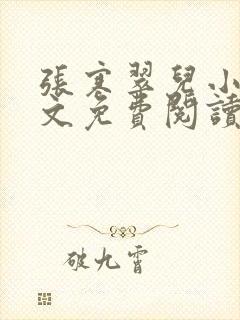 張寒翠兒小
文免費閱讀
破九霄